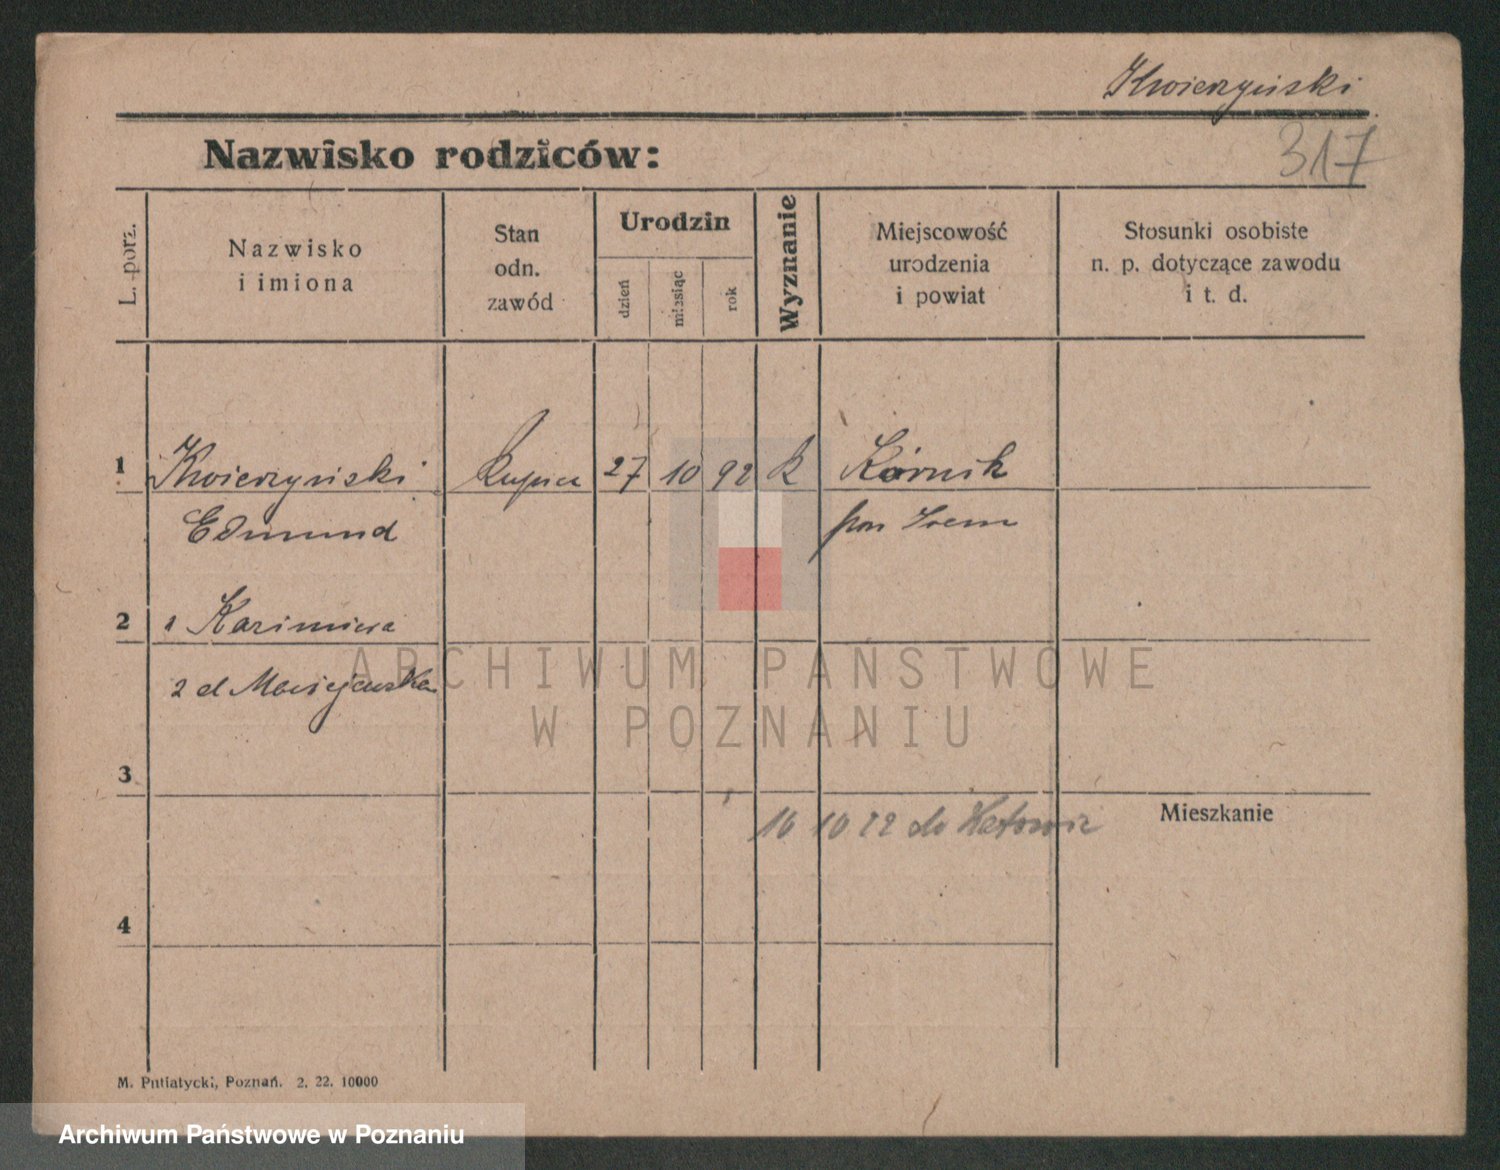 Kwierzyński
317
Nazwisko rodziców:
L. porz.
Nazwisko
i imiona
Stan
odn.
zawód
Urodzin
dzień
miesiąc
rok
Wyznanie
Miejscowość
urodzenia
i powiat
Stosunki osobiste
n. p. dotyczące zawodu
i t. d.
1 Kwierzyński Kupiec 27 10 92 k Kórnik
Edmund pow Śrem
2 1 Kazimiera
2 d Maciejewska
ARCHIWUM PAŃSTWOWE
W POZNANIU
3
16 10 22 do Katowic
Mieszkanie
4
M. Putiatycki, Poznań. 2. 22. 10000
Archiwum Państwowe w Poznaniu